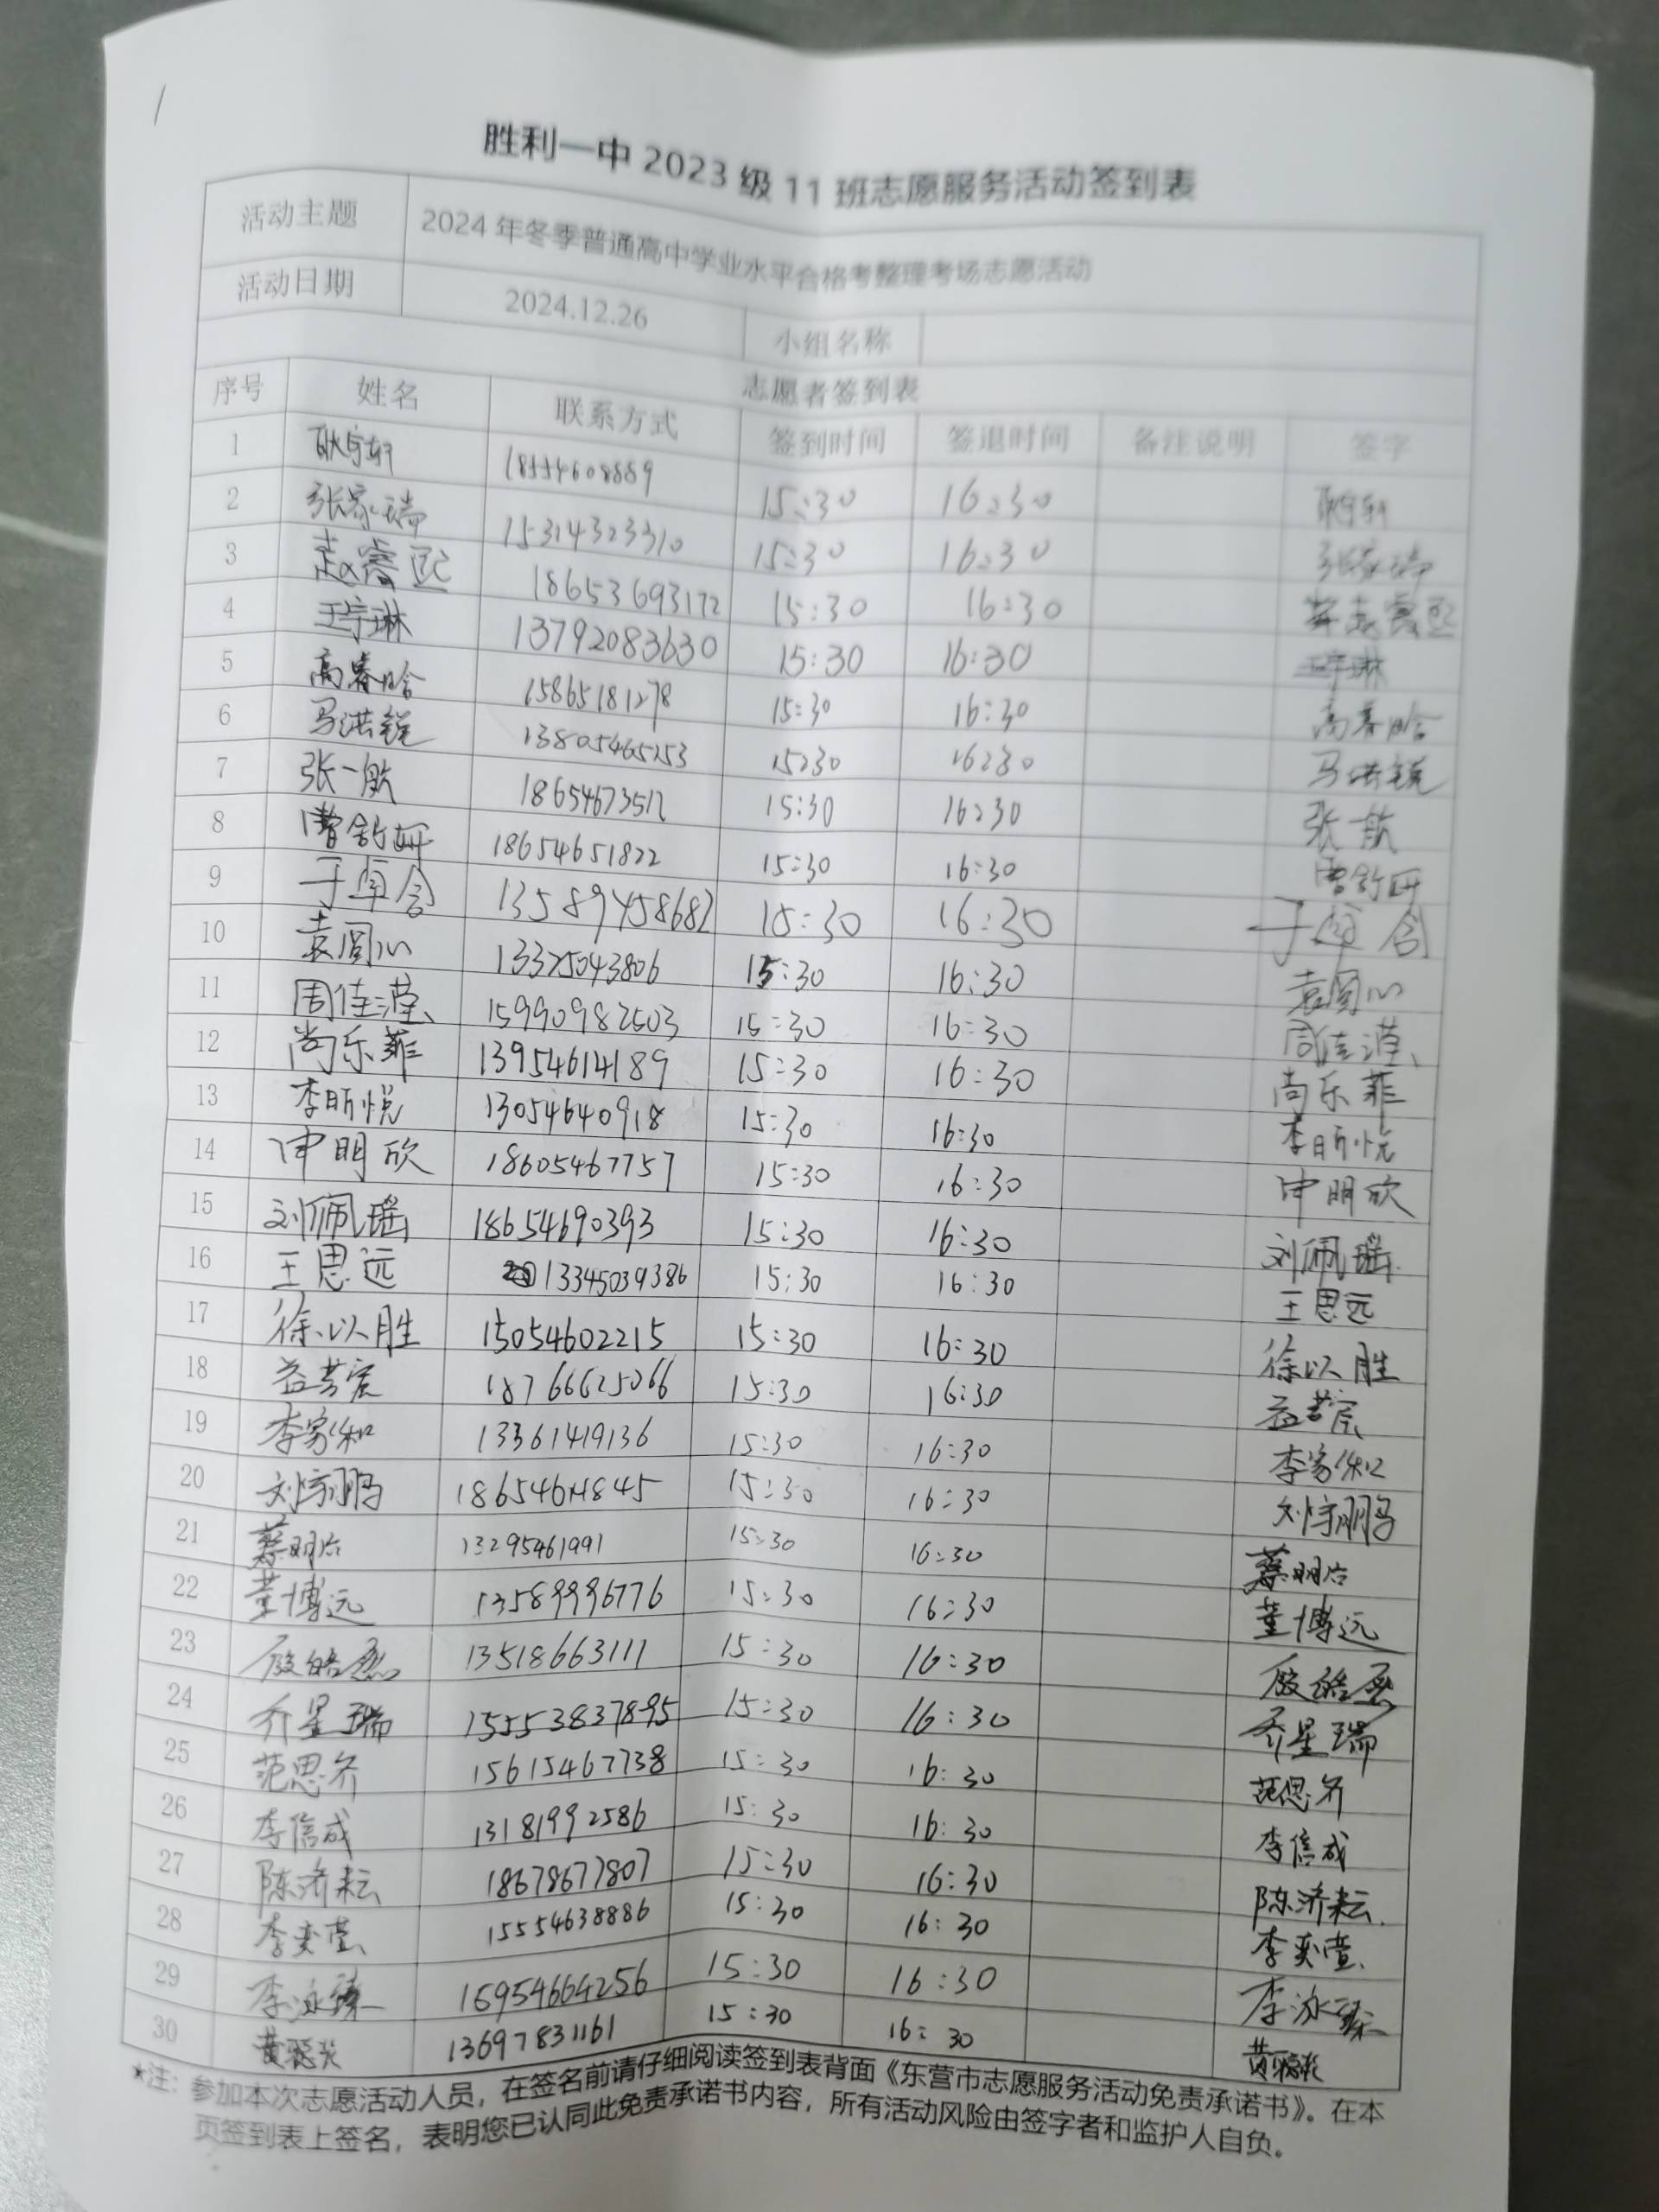 胜利一中 2023 级 11 班志愿服务活动签到表
活动主题 2024 年冬季普通高中学业水平合格考整理考场志愿活动
活动日期 2024.12.26 小组名称
志愿者签到表
序号 姓名 联系方式 签到时间 签退时间 备注说明 签字
1 耿宇轩 18554608889 15:30 16:30 耿宇轩
2 张家瑞 15314323310 15:30 16:30 张家瑞
3 赵睿熙 18653693172 15:30 16:30 赵睿熙
4 王宇琳 13792083630 15:30 16:30 王宇琳
5 高睿晗 15865181278 15:30 16:30 高睿晗
6 马洪锐 13805465253 15:30 16:30 马洪锐
7 张一航 18654673512 15:30 16:30 张一航
8 曹舒妍 18654651822 15:30 16:30 曹舒妍
9 于卓含 13589458682 15:30 16:30 于卓含
10 袁圆心 13325043806 15:30 16:30 袁圆心
11 周佳滢 15990982503 15:30 16:30 周佳滢
12 尚乐菲 13954614189 15:30 16:30 尚乐菲
13 李昕悦 13054640918 15:30 16:30 李昕悦
14 申明欣 18605467757 15:30 16:30 申明欣
15 刘佩瑶 18654690393 15:30 16:30 刘佩瑶
16 王思远 13345039386 15:30 16:30 王思远
17 徐以胜 15054602215 15:30 16:30 徐以胜
18 18766625066 15:30 16:30
19 李家和 13361419136 15:30 16:30 李家和
20 刘宇鹏 15:30 16:30 刘宇鹏
21 蔡明洽 13295461991 15:30 16:30 蔡明洽
22 董博远 13589996776 15:30 16:30 董博远
23 13518663111 15:30 16:30
24 乔星瑞 15553837895 15:30 16:30 乔星瑞
25 范思齐 15615467738 15:30 16:30 范思齐
26 李信成 13181992586 15:30 16:30 李信成
27 陈济耘 18678677807 15:30 16:30 陈济耘
28 李奕萱 15554638886 15:30 16:30 李奕萱
29 李泳臻 15954664256 15:30 16:30 李泳臻
30 13697831161 15:30 16:30
*注：参加本次志愿活动人员，在签名前请仔细阅读签到表背面《东营市志愿服务活动免责承诺书》。在本
页签到表上签名，表明您已认同此免责承诺书内容，所有活动风险由签字者和监护人自负。